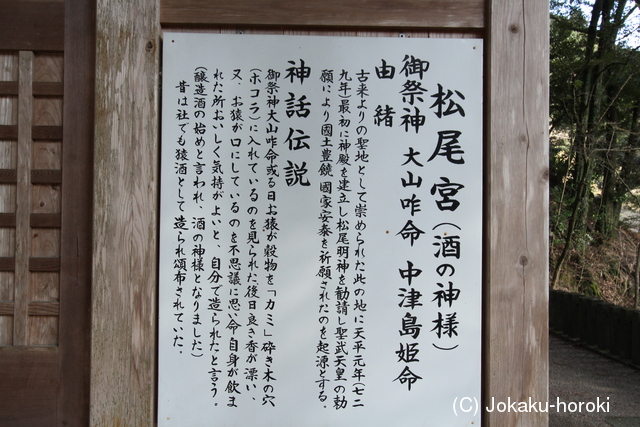 松尾宮(酒の神様)
御祭神 大山咋命 中津島姫命
由緒
古来よりの聖地として崇められた此の地に天平元年(七二
九年)最初に神殿を建立し松尾明神を勧請し聖武天皇の勅
願により國土豊饒國家安泰を祈願されたのを起源とする。
神話伝説
御祭神大山咋命或る日お猿が穀物を「カミ」砕き木の穴
(ホコラ)に入れているのを見られた後日良い香が漂い、
又、お猿が口にしているのを不思議に思い命自身が飲ま
れた所おいしく気持がよいと、自分で造られたと言う。
(醸造酒の始めと言われ、酒の神様となりました)
昔は社でも猿酒として造られ頒布されていた。
(C) Jokaku-horoki